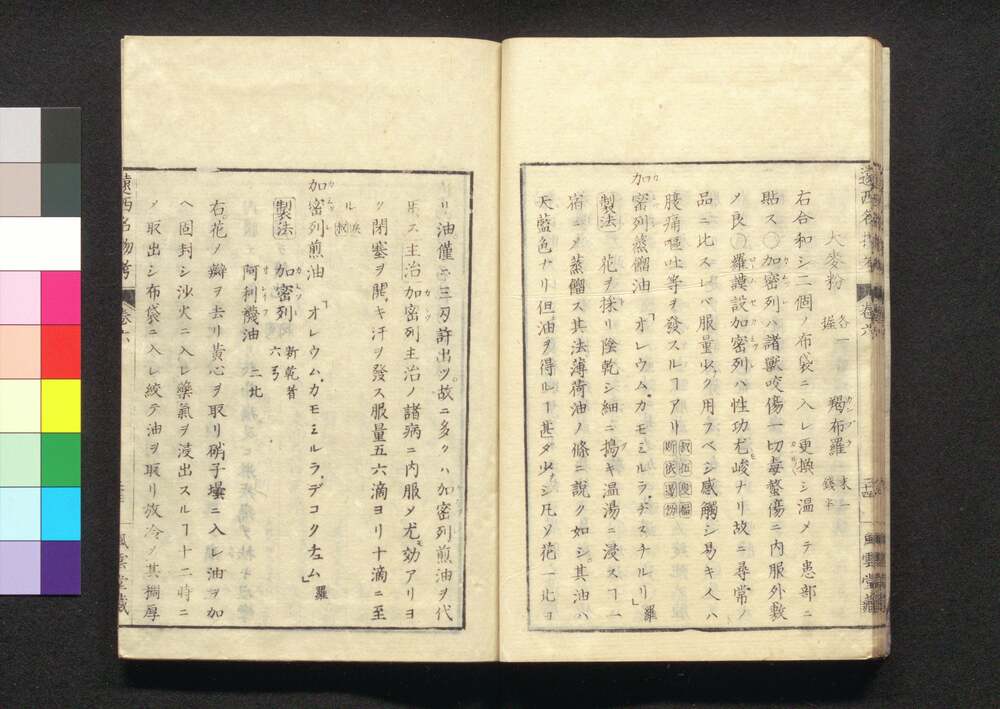 大麥粉 各一握 羯布羅 末一錢半
右合和シ二個ノ布袋ニ入レ更換シ温メテ患部ニ
貼ス○加密列ハ諸獸咬傷一切毒螫傷ニ内服外敷
メ良○羅謨設加密列ハ性功尤峻ナリ故ニ尋常ノ
品ニ比スレバ服量少ク用フベシ感觸シ易キ人ハ
腹痛嘔吐等ヲ發スルヿアリ
加密列蒸餾油 「オレウム、カモミルラ、デスチルリ」羅
製法 花ヲ採リ陰乾シ細ニ搗キ温湯ニ浸スヿ一
宿ニメ蒸餾ス其法薄荷油ノ條ニ説ク如シ其油ハ
天藍色ナリ但油ヲ得ルヿ甚タ少シ凡ソ花一七ヨ
リ油僅ニ三刃許出ツ故ニ多クハ加密列煎油ヲ代
用ス主治 加密列主治ノ諸病ニ内服メ尤効アリヨ
ク閉塞ヲ開キ汗ヲ發ス服量五六滴ヨリ十滴ニ至
ル
加密列煎油 「オレウム、カモミルラ、デコクタム」羅
製法 加密列 新乾者 六弓
阿利機油 二
右花ノ瓣ヲ去リ黄心ヲ取リ硝子壜ニ入レ油ヲ加
ヘ固封シ沙火ニ入レ藥氣ヲ浸出スルヿ十二時ニ
メ取出シ布袋ニ入レ絞テ油ヲ取リ放冷メ其稠厚
遠西名物考 卷六 風雲堂藏